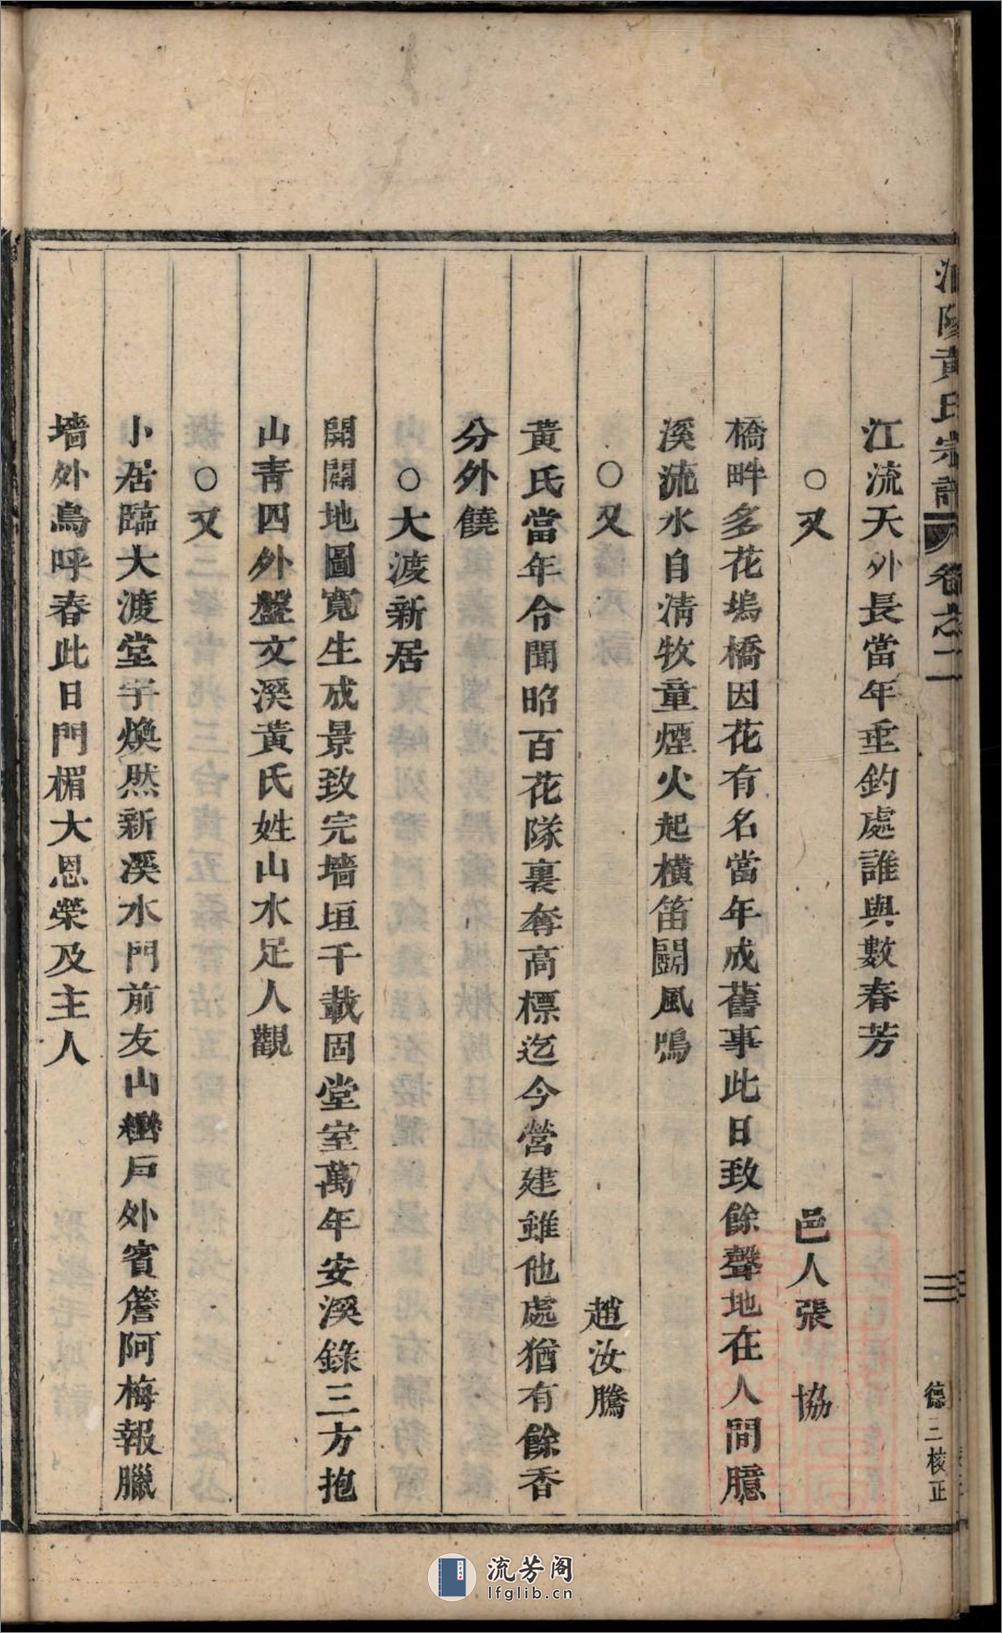 江流天外長當年垂釣處誰與數春芳
○又
邑人張　協
橋畔多花塢橋因花有名當年成舊事此日致餘聲地在人間臆
溪流水自清牧童煙火起橫笛鬭風鳴
○又
趙汝騰
黃氏當年令聞昭百花隊裏奪高標迄今營建雖他處猶有餘香
分外饒
○大渡新居
開闢地圖寬生成景致完墻垣千載固堂室萬年安溪錄三方抱
山青四外盤文溪黃氏姓山水足人觀
○又
小居臨大渡堂宇煥然新溪水門前友山巒戶外賓簷阿梅報臘
墻外鳥呼春此日門楣大恩榮及主人
陽黃氏宗譜
卷之二
三
德三校正
流芳阁
lfglib.cn